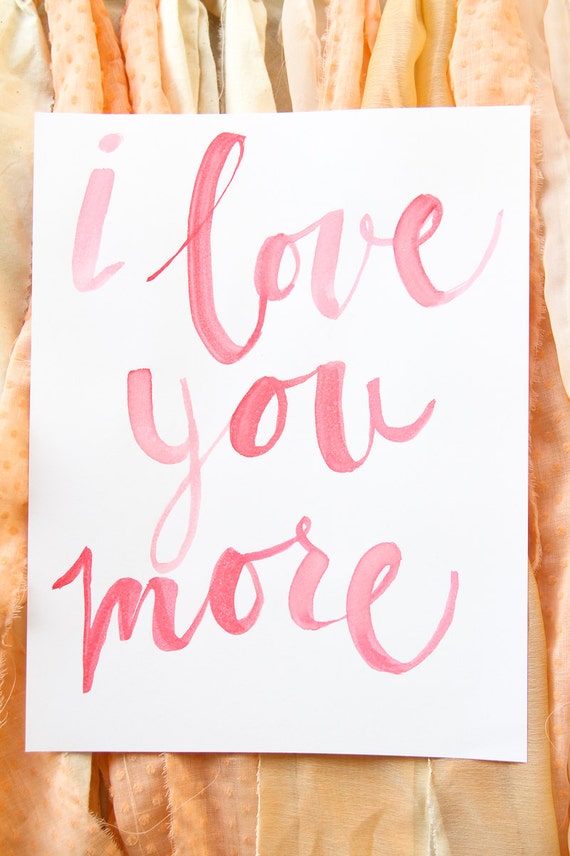 i love
you
more